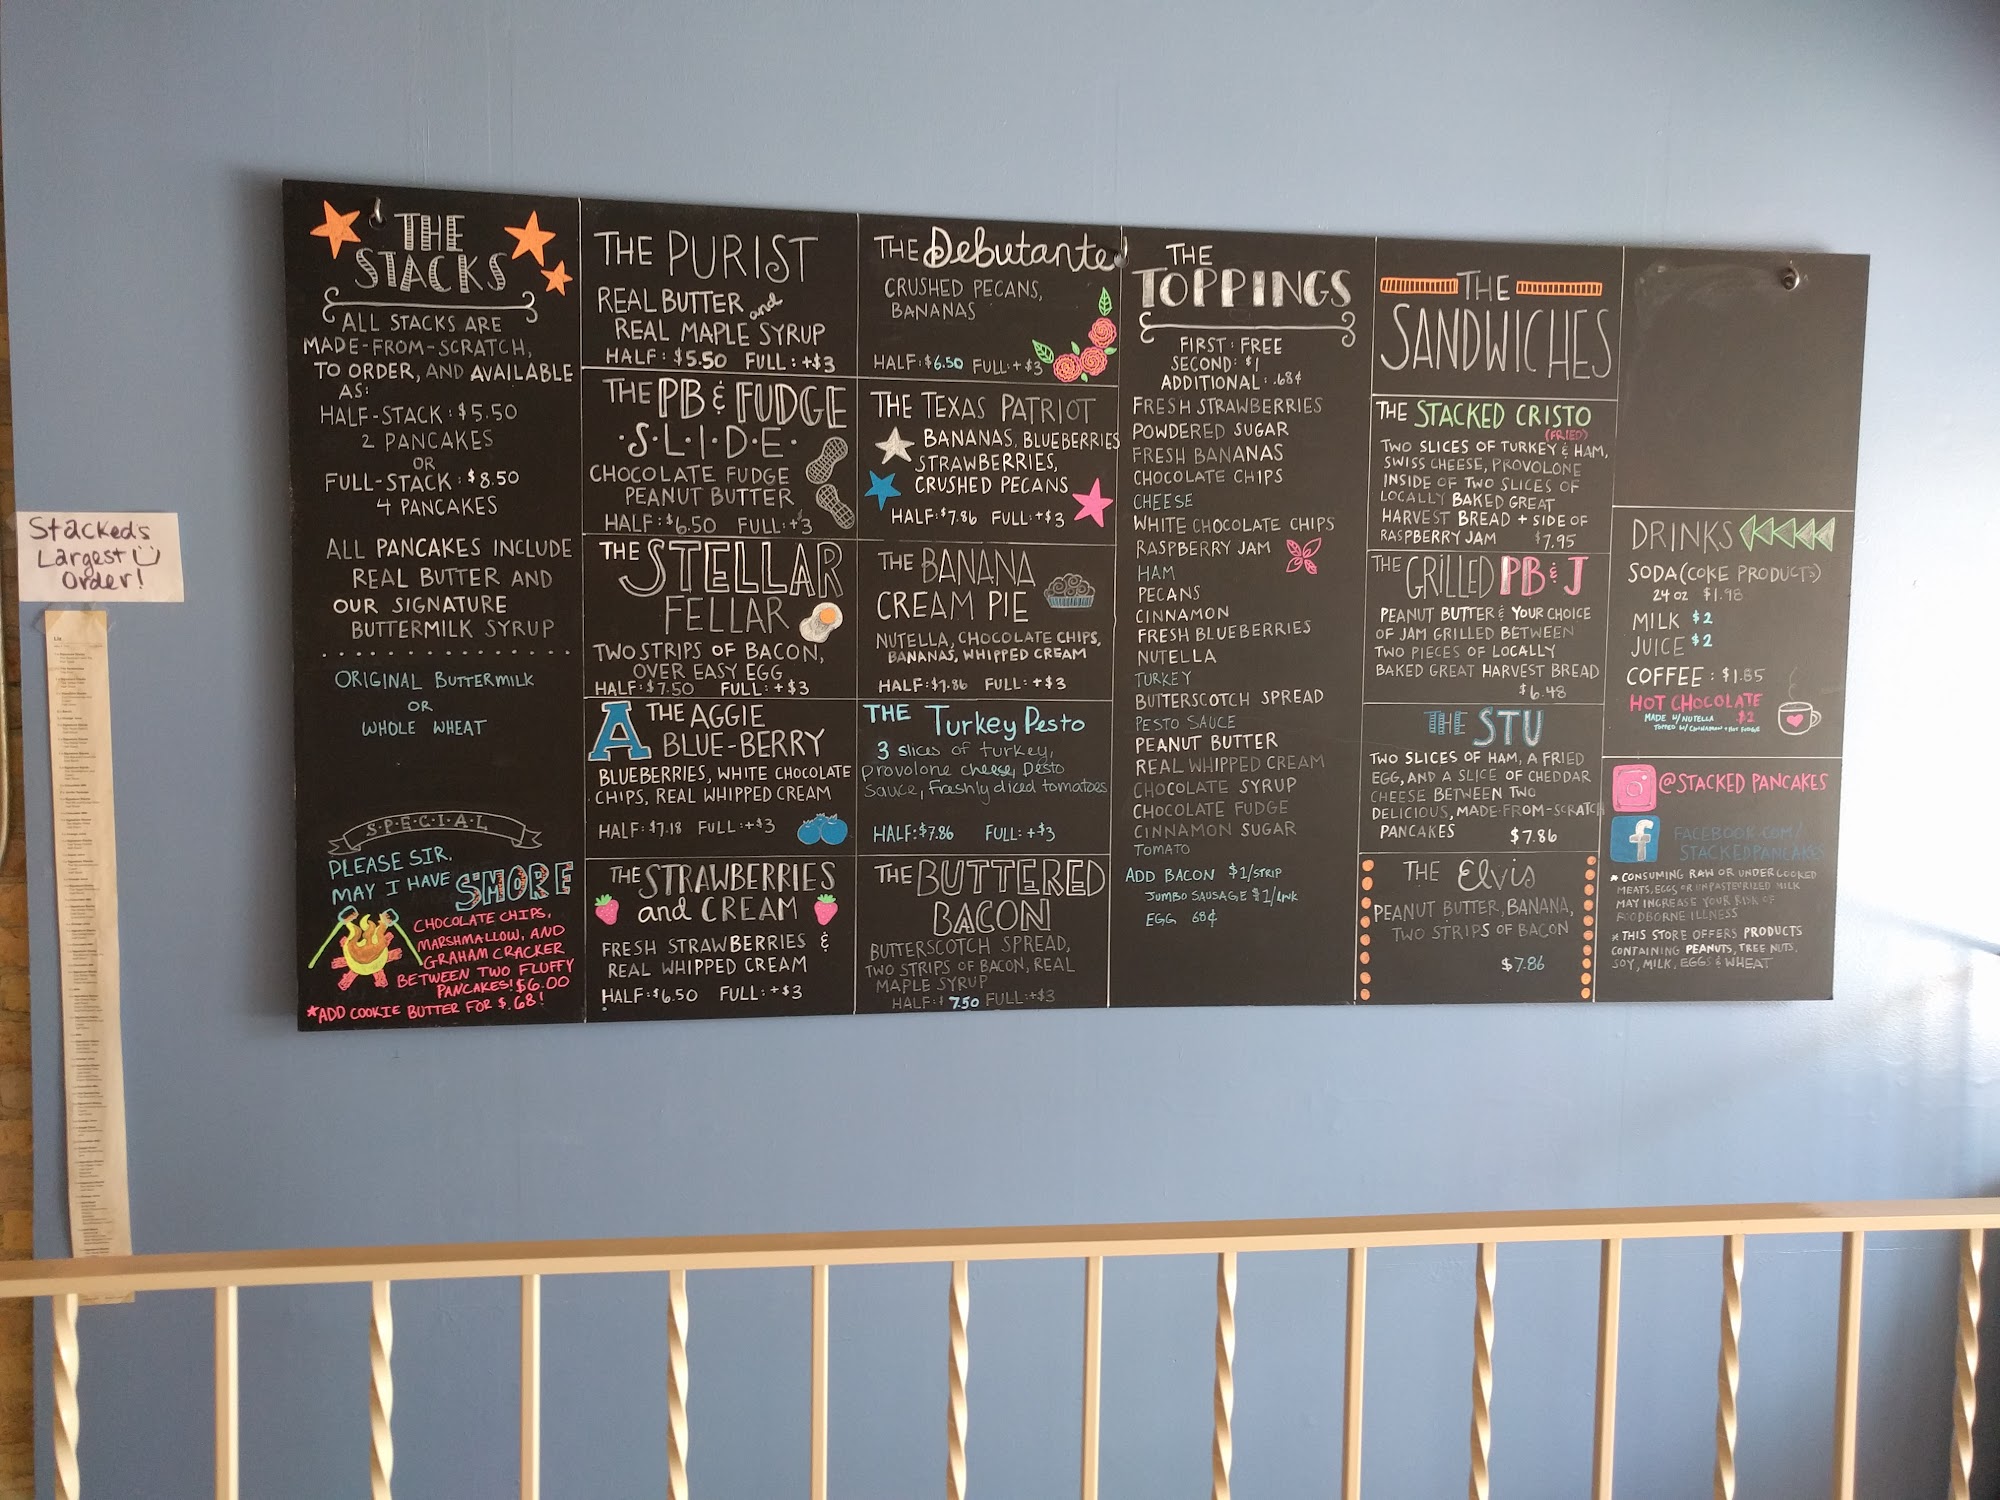 Stacked's
Largest
Order!
THE
STACKS
ALL STACKS ARE
MADE-FROM-SCRATCH,
TO ORDER, AND AVAILABLE
AS:
HALF-STACK: $5.50
2 PANCAKES
OR
FULL-STACK: $8.50
4 PANCAKES
ALL PANCAKES INCLUDE
REAL BUTTER AND
OUR SIGNATURE
BUTTERMILK SYRUP
ORIGINAL BUTTERMILK
OR
WHOLE WHEAT
S·P·E·C·I·A·L
PLEASE SIR,
MAY I HAVE S'MORE
CHOCOLATE CHIPS,
MARSHMALLOW, AND
GRAHAM CRACKER
BETWEEN TWO FLUFFY
PANCAKES! $6.00
*ADD COOKIE BUTTER FOR $.68!
THE PURIST
REAL BUTTER and
REAL MAPLE SYRUP
HALF: $5.50 FULL: +$3
THE PB & FUDGE
·S·L·I·D·E·
CHOCOLATE FUDGE
PEANUT BUTTER
HALF: $6.50 FULL: +$3
THE STELLAR
FELLAR
TWO STRIPS OF BACON,
OVER EASY EGG
HALF: $7.50 FULL: +$3
A THE AGGIE
BLUE-BERRY
BLUEBERRIES, WHITE CHOCOLATE
CHIPS, REAL WHIPPED CREAM
HALF: $7.18 FULL: +$3
THE STRAWBERRIES
and CREAM
FRESH STRAWBERRIES &
REAL WHIPPED CREAM
HALF: $6.50 FULL: +$3
THE Debutante
CRUSHED PECANS,
BANANAS
HALF: $6.50 FULL: +$3
THE TEXAS PATRIOT
BANANAS, BLUEBERRIES
STRAWBERRIES,
CRUSHED PECANS
HALF: $7.86 FULL: +$3
THE BANANA
CREAM PIE
NUTELLA, CHOCOLATE CHIPS,
BANANAS, WHIPPED CREAM
HALF: $7.86 FULL: +$3
THE Turkey Pesto
3 slices of turkey,
provolone cheese, Pesto
sauce, freshly diced tomatoes
HALF: $7.86 FULL: +$3
THE BUTTERED
BACON
BUTTERSCOTCH SPREAD,
TWO STRIPS OF BACON, REAL
MAPLE SYRUP
HALF: $7.50 FULL: +$3
THE
TOPPINGS
FIRST: FREE
SECOND: $1
ADDITIONAL: .68¢
FRESH STRAWBERRIES
POWDERED SUGAR
FRESH BANANAS
CHOCOLATE CHIPS
CHEESE
WHITE CHOCOLATE CHIPS
RASPBERRY JAM
HAM
PECANS
CINNAMON
FRESH BLUEBERRIES
NUTELLA
TURKEY
BUTTERSCOTCH SPREAD
PESTO SAUCE
PEANUT BUTTER
REAL WHIPPED CREAM
CHOCOLATE SYRUP
CHOCOLATE FUDGE
CINNAMON SUGAR
TOMATO
ADD BACON $1/STRIP
JUMBO SAUSAGE $1/LINK
EGG 68¢
THE
SANDWICHES
THE STACKED CRISTO
(FRIED)
TWO SLICES OF TURKEY & HAM,
SWISS CHEESE, PROVOLONE
INSIDE OF TWO SLICES OF
LOCALLY BAKED GREAT
HARVEST BREAD + SIDE OF
RASPBERRY JAM $7.95
THE GRILLED PB & J
PEANUT BUTTER & YOUR CHOICE
OF JAM GRILLED BETWEEN
TWO PIECES OF LOCALLY
BAKED GREAT HARVEST BREAD
$6.48
THE STU
TWO SLICES OF HAM, A FRIED
EGG, AND A SLICE OF CHEDDAR
CHEESE BETWEEN TWO
DELICIOUS, MADE-FROM-SCRATCH
PANCAKES $7.86
THE Elvis
PEANUT BUTTER, BANANA,
TWO STRIPS OF BACON
$7.86
DRINKS
SODA (COKE PRODUCTS)
24 OZ $1.98
MILK $2
JUICE $2
COFFEE: $1.85
HOT CHOCOLATE
MADE W/ NUTELLA $2
TOPPED W/ CINNAMON + HOT FUDGE
@STACKED PANCAKES
f FACEBOOK.COM/
STACKEDPANCAKES
* CONSUMING RAW OR UNDERCOOKED
MEATS, EGGS OR UNPASTEURIZED MILK
MAY INCREASE YOUR RISK OF
FOODBORNE ILLNESS
* THIS STORE OFFERS PRODUCTS
CONTAINING PEANUTS, TREE NUTS,
SOY, MILK, EGGS & WHEAT